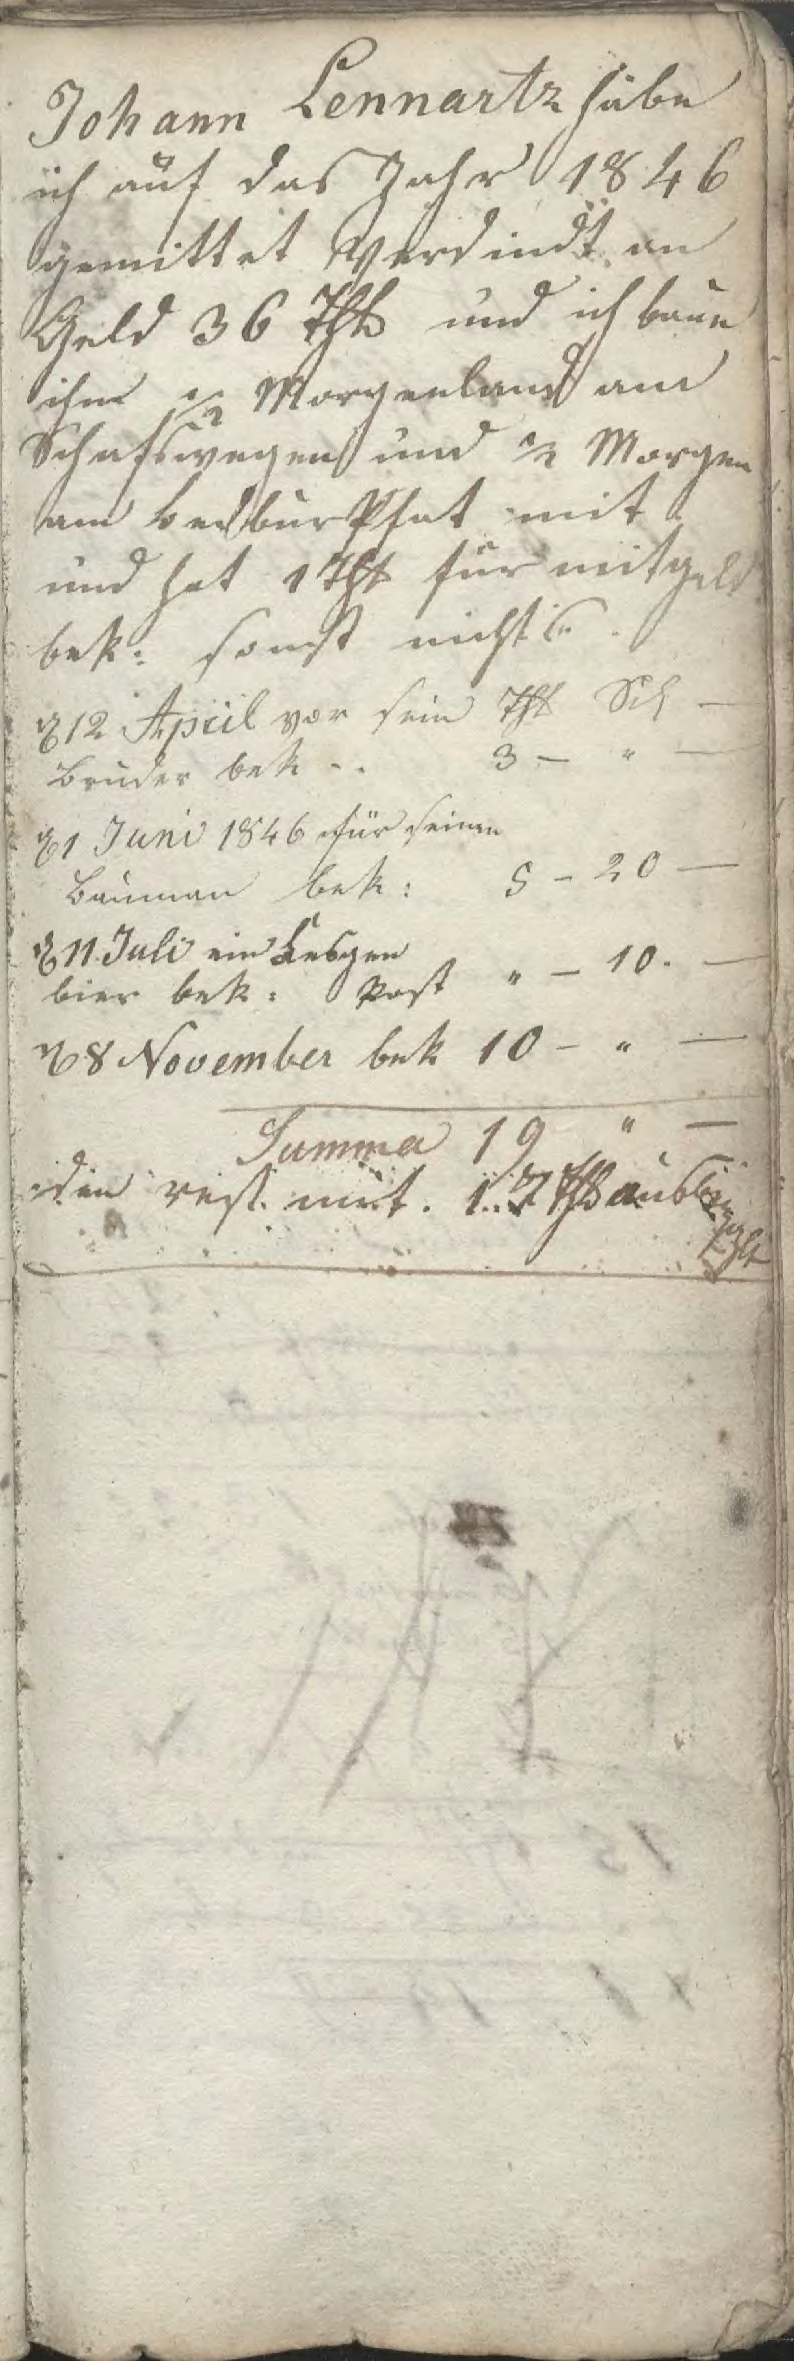 Johann Lennartz habe
ich auf das Jahr 1846
gemittet Verdindt an
Geld 36 Thl und ich baue
ihm ½ Morgenland am
Schafswegen und ½ Morgen
am bedburPfat mit
und hat 1 Thl für mitgeld
bek: sonst nichts.
12 April vor sein Thl Sil —
Bruder bek .. 3 — " —
1 Juni 1846 für seinen
Bauman bek: 5 – 20 —
11 Juli ein
bier bek: Post " – 10. —
8 November bek 10 – " —
Summa 19 " —
den rest mit. 17 Thl ausbezahlt